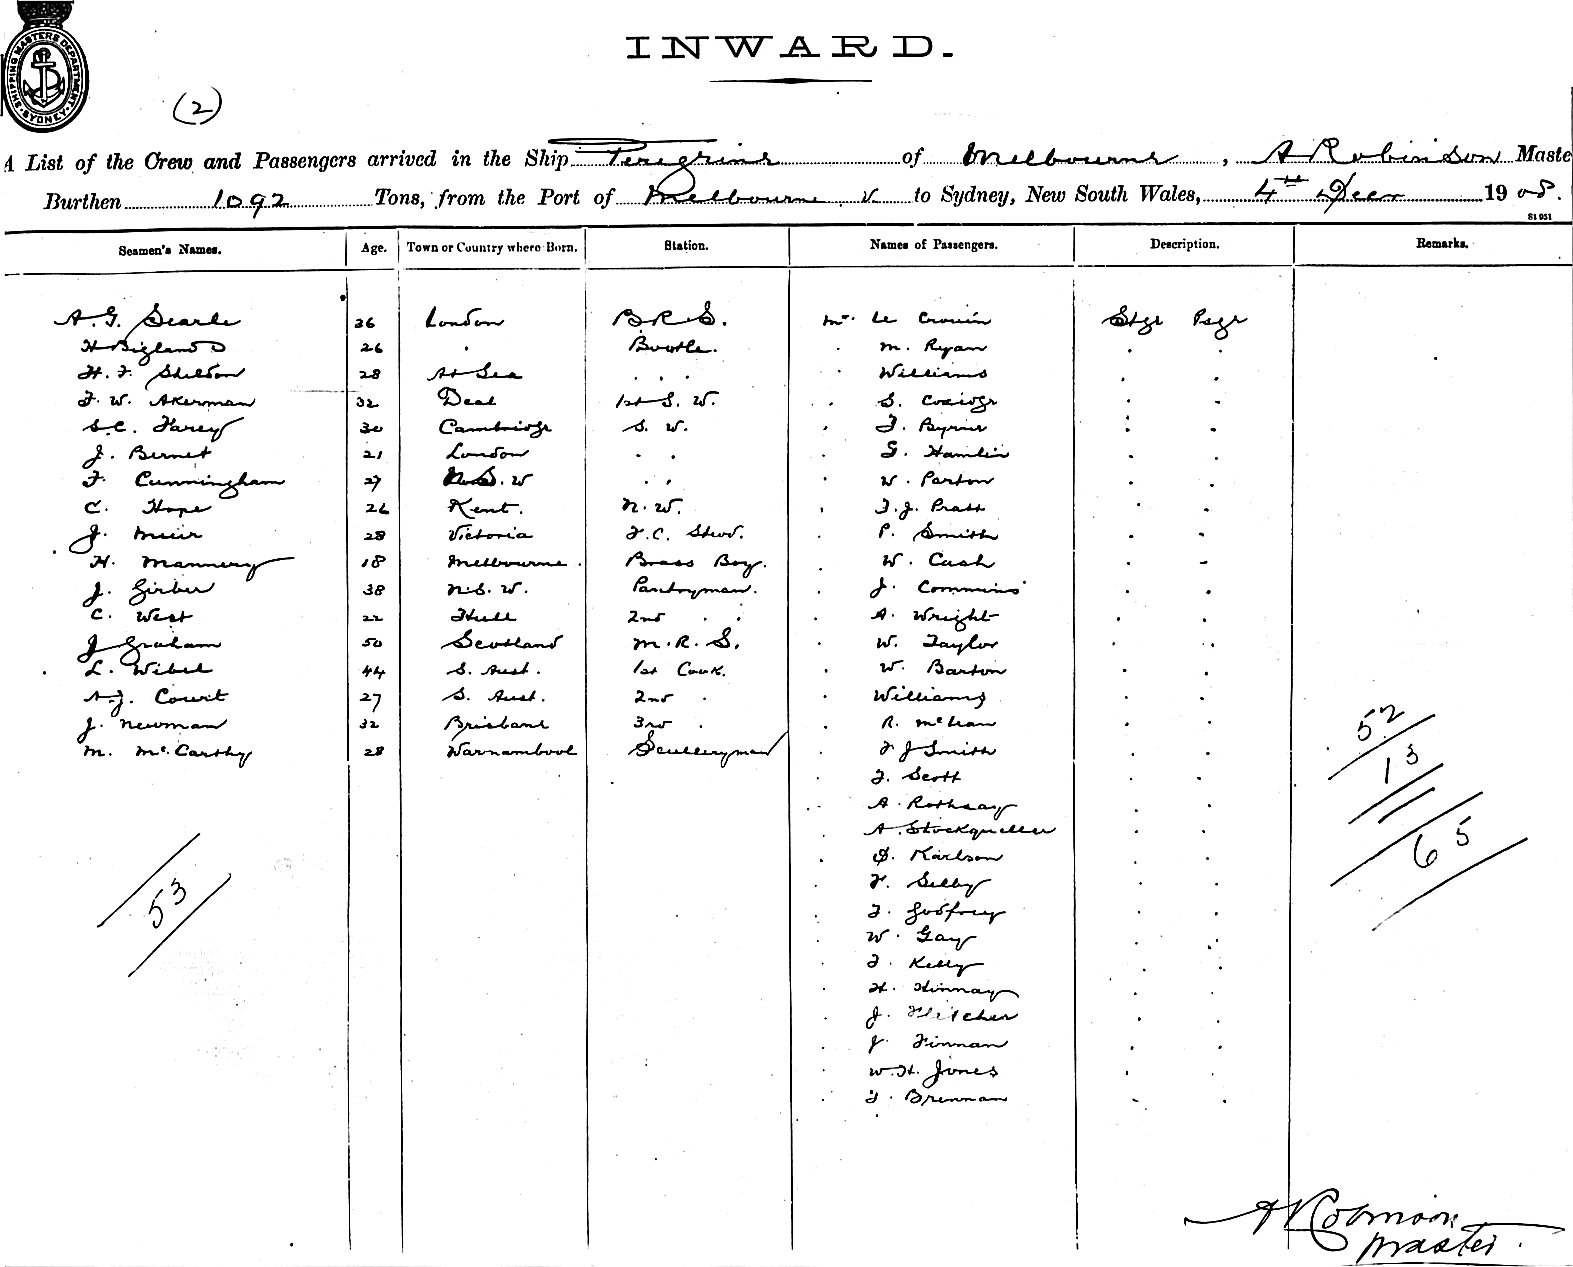 SHIPPING MASTERS DEPARTMENT SYDNEY
INWARD.
(2)
A List of the Crew and Passengers arrived in the Ship Peregrine of Melbourne, A Robinson Maste
Burthen 1092 Tons, from the Port of Melbourne V. to Sydney, New South Wales, 4th Decr 1908.
S1 951
Seamen's Names. Age. Town or Country where Born. Station. Names of Passengers. Description. Remarks.
A. G. Searle 36 London B.R.S. Mr. Le Stge Psgr
H Bigland 26 . Bootle. . M. Ryan . .
H. F. Sheldon 28 At Sea . . . . Williams . .
F. W. Akerman 32 Deal 1st S. W. . S. . .
S.C. Farey 30 Cambridge S. W. . F. Byrne . .
J. Bernet 21 London . . . G. Hamlin . .
F. Cunningham 27 N.S.W . . . W. Parton . .
C. Hope 26 Kent. N.W. . F.J. Pratt . .
J. Muir 28 Victoria F.C. Stwd. . P. Smith . .
H. Mannery 18 Melbourne. Brass Boy. . W. Cash . .
J. Girber 38 N.S.W. Pantryman. . J. Commins . .
C. West 22 Hull 2nd . . . A. Wright . .
J Graham 50 Scotland M.R.S. . W. Taylor . .
L. Wibel 44 S. Aust. 1st Cook. . W. Barton . .
A.J. Court 27 S. Aust. 2nd . . Williams . .
J. Newman 32 Brisbane 3rd . . R. McLean . .
M. McCarthy 28 Warnambool Sculleryman . F J Smith . .
. F. Scott . .
. A. Rothsay . .
. A. Stockqueller . .
. O. Karlson . .
. F. Selby . .
. F. Godfrey . .
. W. Gay . .
. F. Kelly . .
. H. Hinnay . .
. J. Fletcher . .
. J. Finnan . .
. W.H. Jones . .
. F. Brennan . .
53
52
13
65
A Robinson
Master.